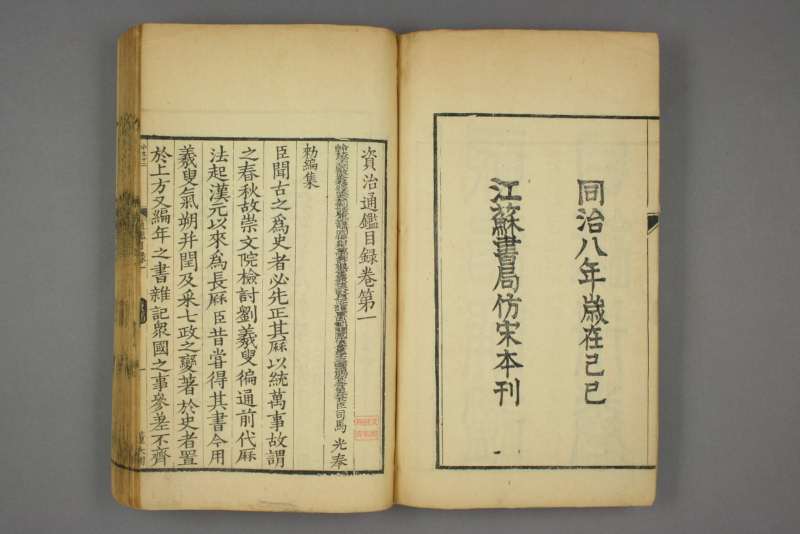 同治八年歲在己巳
江蘇書局仿宋本刊
資治通鑑目録卷第一
臣司馬光奉
勑編集
臣聞古之爲史者必先正其厤以統萬事故謂
之春秋故崇文院檢討劉羲叟徧通前代厤
法起漢元以來爲長厤臣昔嘗得其書今用
羲叟氣朔并閏及采七政之變著於史者置
於上方又編年之書雜記衆國之事參差不齊